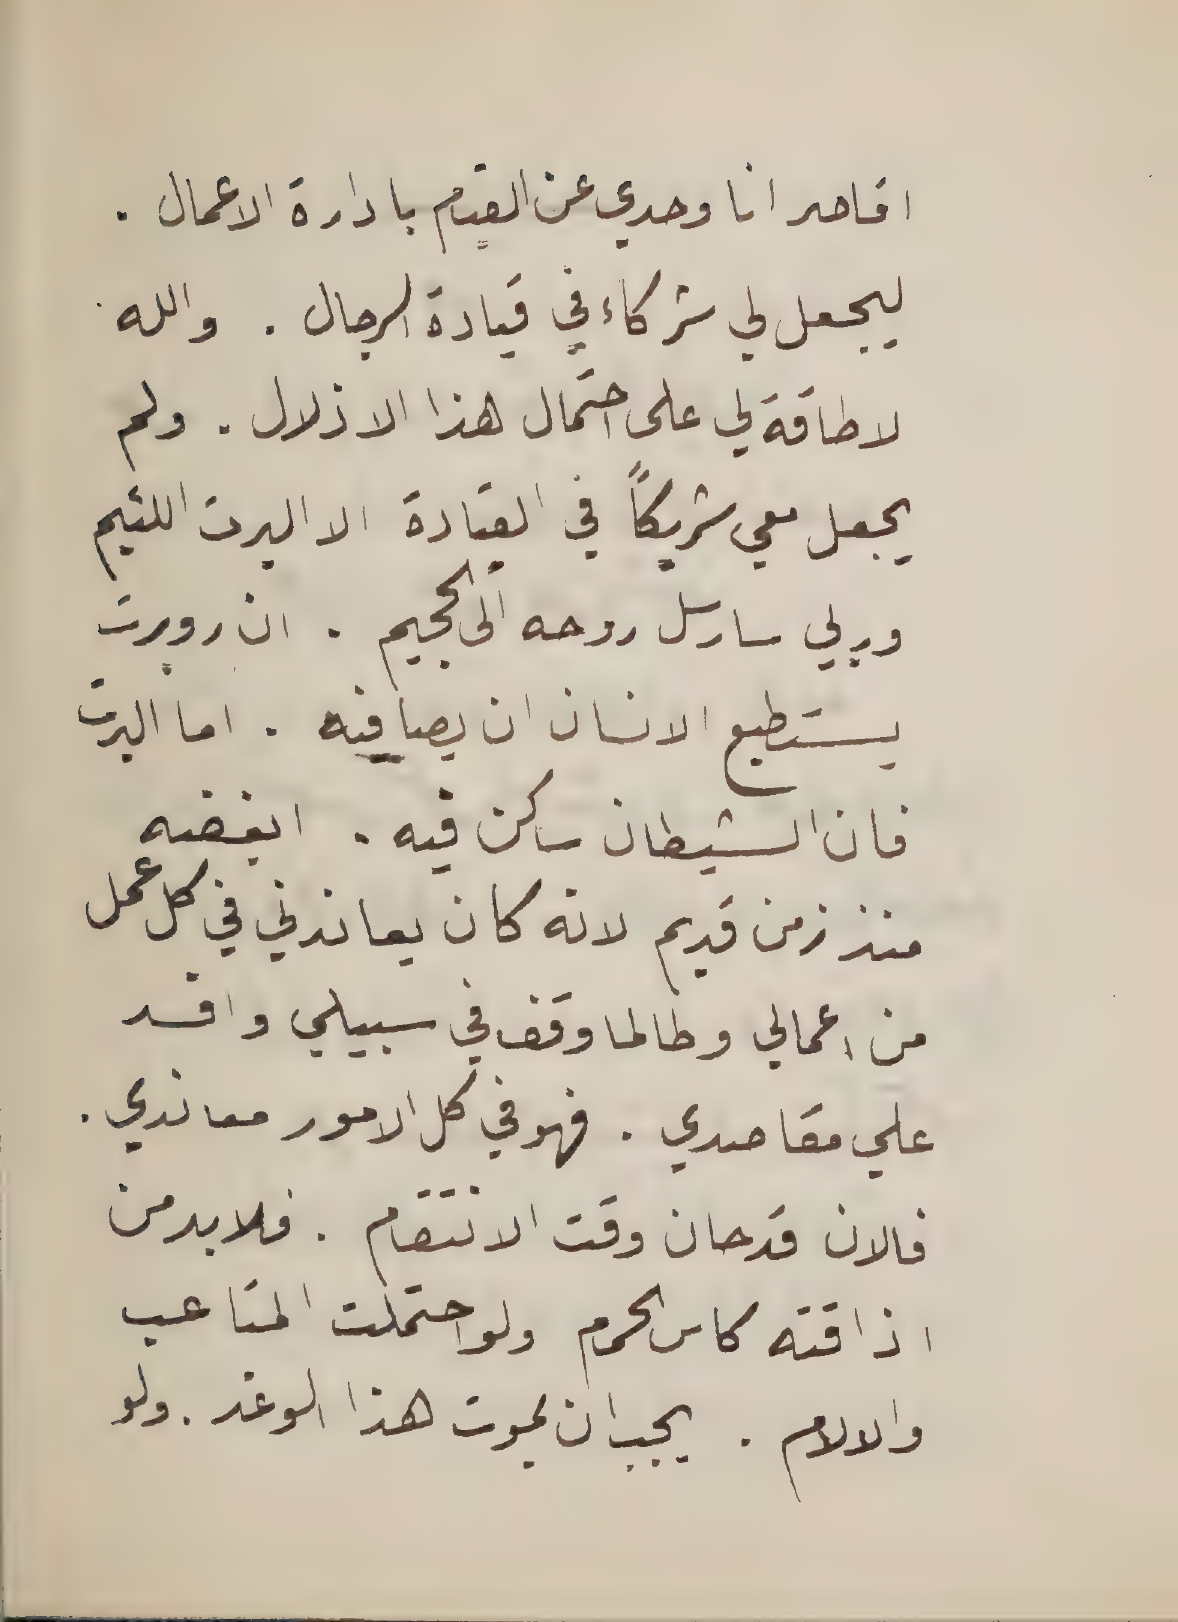 اقاصر انا وحدي عن القيام بادارة الاعمال .
ليجعل لي شركاء في قيادة الرجال . والله
لا طاقة لي على احتمال هذا الاذلال . ولم
يجعل معي شريكاً في القيادة الا البرت اللئيم
وربي سارسل روحه الى الجحيم . ان روبرت
يستطيع الانسان ان يصافيه . اما البرت
فان الشيطان ساكن فيه . ابغضه
منذ زمن قديم لانه كان يعاندني في كل عمل
من اعمالي وطالما وقف في سبيلي وافسد
علي مقاصدي . فهو في كل الامور معاندي .
فالان قد حان وقت الانتقام . فلا بد من
اذاقته كاس الحرم ولو احتملت المتاعب
والالام . يجب ان يموت هذا الوغد . ولو